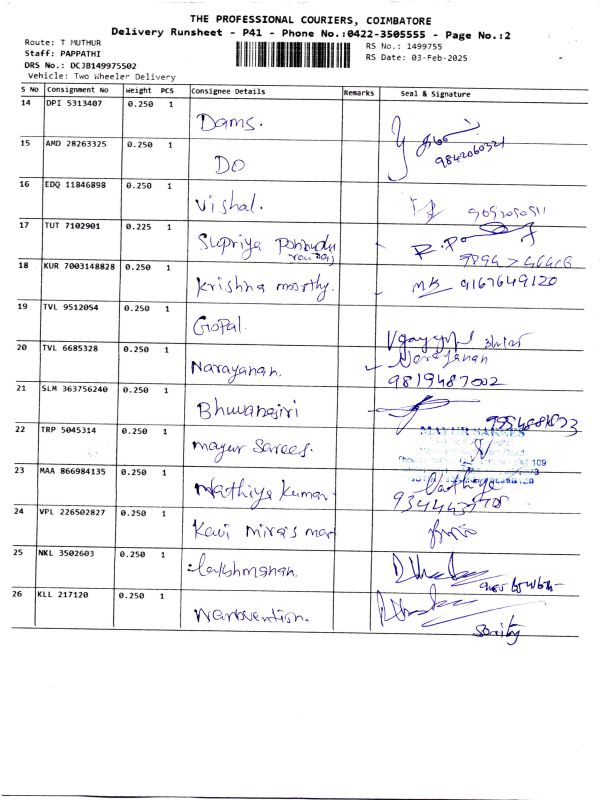 THE PROFESSIONAL COURIERS, COIMBATORE
Delivery Runsheet - P41 - Phone No.:0422-3505555 - Page No.:2
Route: T MUTHUR
RS No.: 1499755
Staff: PAPPATHI
RS Date: 03-Feb-2025
DRS No.: DCJB149975502
Vehicle: Two Wheeler Delivery
S No Consignment No Weight PCS Consignee Details Remarks Seal & Signature
14 DPI 5313407 0.250 1 Dams.
15 AMD 28263325 0.250 1 DO 9842060321
16 EDQ 11846898 0.250 1 Vishal.
17 TUT 7102901 0.225 1 Supriya
18 KUR 7003148828 0.250 1 Krishna moorthy. MK 9167649120
19 TVL 9512054 0.250 1 Gopal.
20 TVL 6685328 0.250 1 Narayanan. Narayanan
9819487002
21 SLM 363756240 0.250 1 Bhuvanesiri
22 TRP 5045314 0.250 1 mayur Sarees. MAYUR SAREES
23 MAA 866984135 0.250 1 Nathiya Kumar.
24 VPL 226502827 0.250 1 Kavi Mira's
25 NKL 3502603 0.250 1 Lakshmanan.
26 KLL 217120 0.250 1